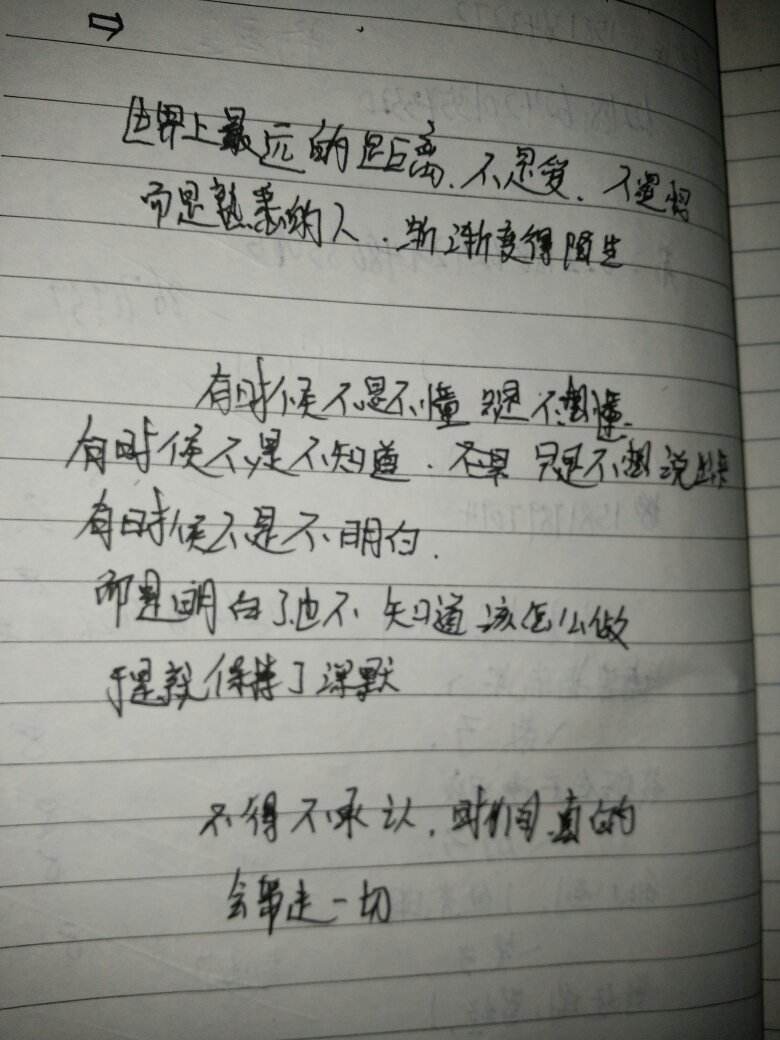 世界上最远的距离.不是爱.不是恨
而是熟悉的人.渐渐变得陌生
有时候不是不懂 只是不想懂.
有时候不是不知道. 只是不想说出来
有时候不是不明白.
而是明白了也不知道该怎么做
于是就保持了沉默
不得不承认.时间真的
会带走一切